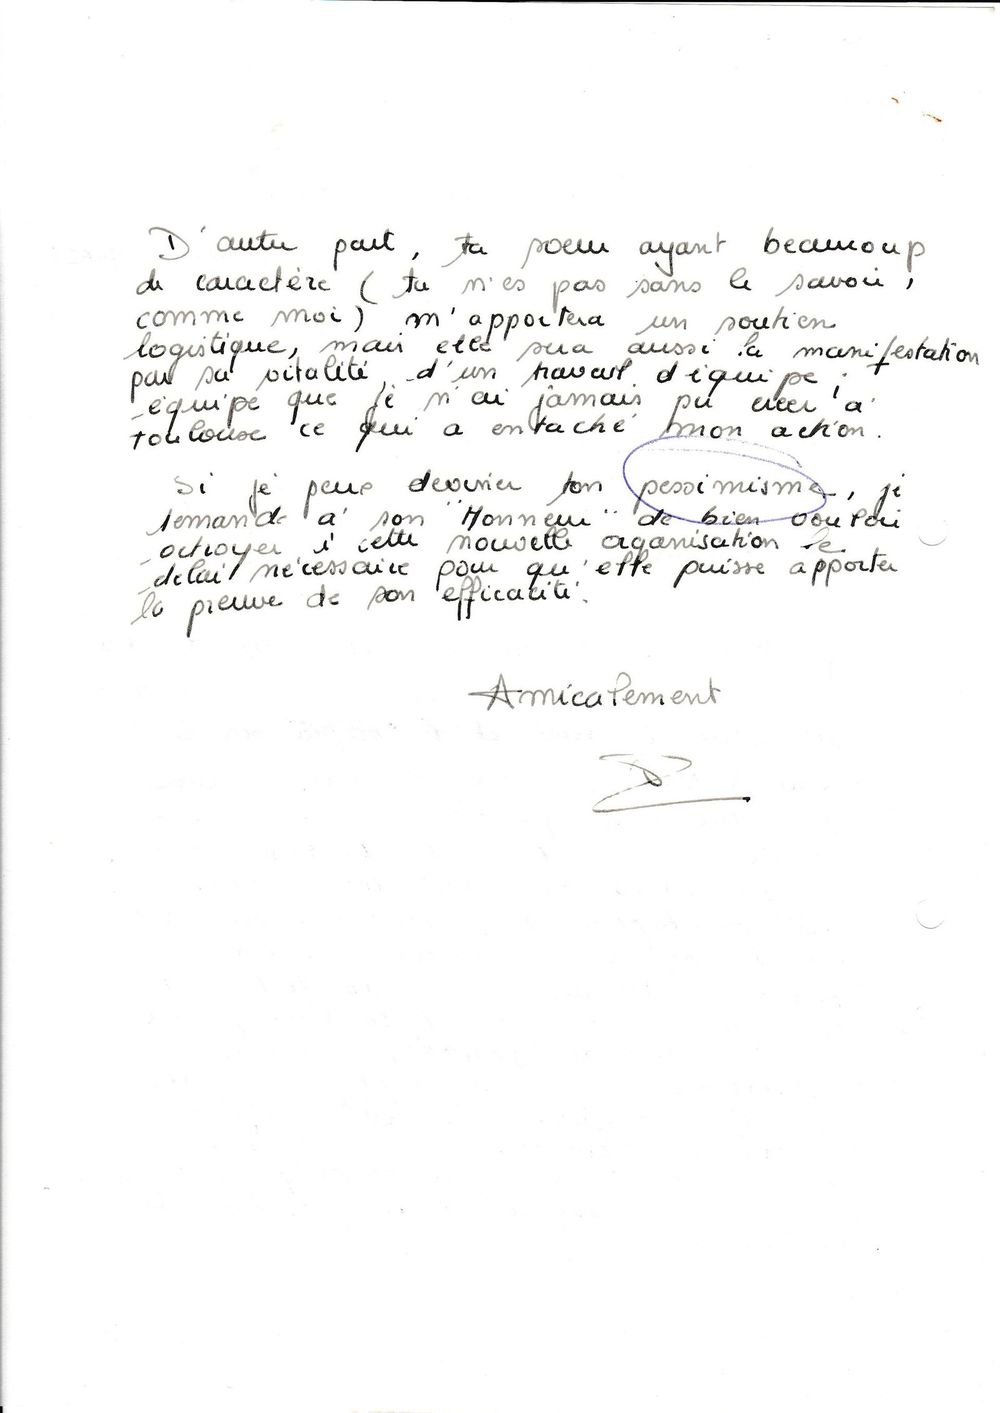 D'autre part, ta soeur ayant beaucoup
de caractère (tu n'es pas sans le savoir,
comme moi) m'apportera un soutien
logistique, mais elle sera aussi la manifestation
par sa vitalité, d'un travail d'équipe;
équipe que je n'ai jamais pu créer à
Toulouse ce qui a entaché mon action.
Si je peux deviner ton pessimisme, je
demande à son "Honneur" de bien vouloir
octroyer à cette nouvelle organisation le
délai nécessaire pour qu'elle puisse apporter
la preuve de son efficacité.
Amicalement